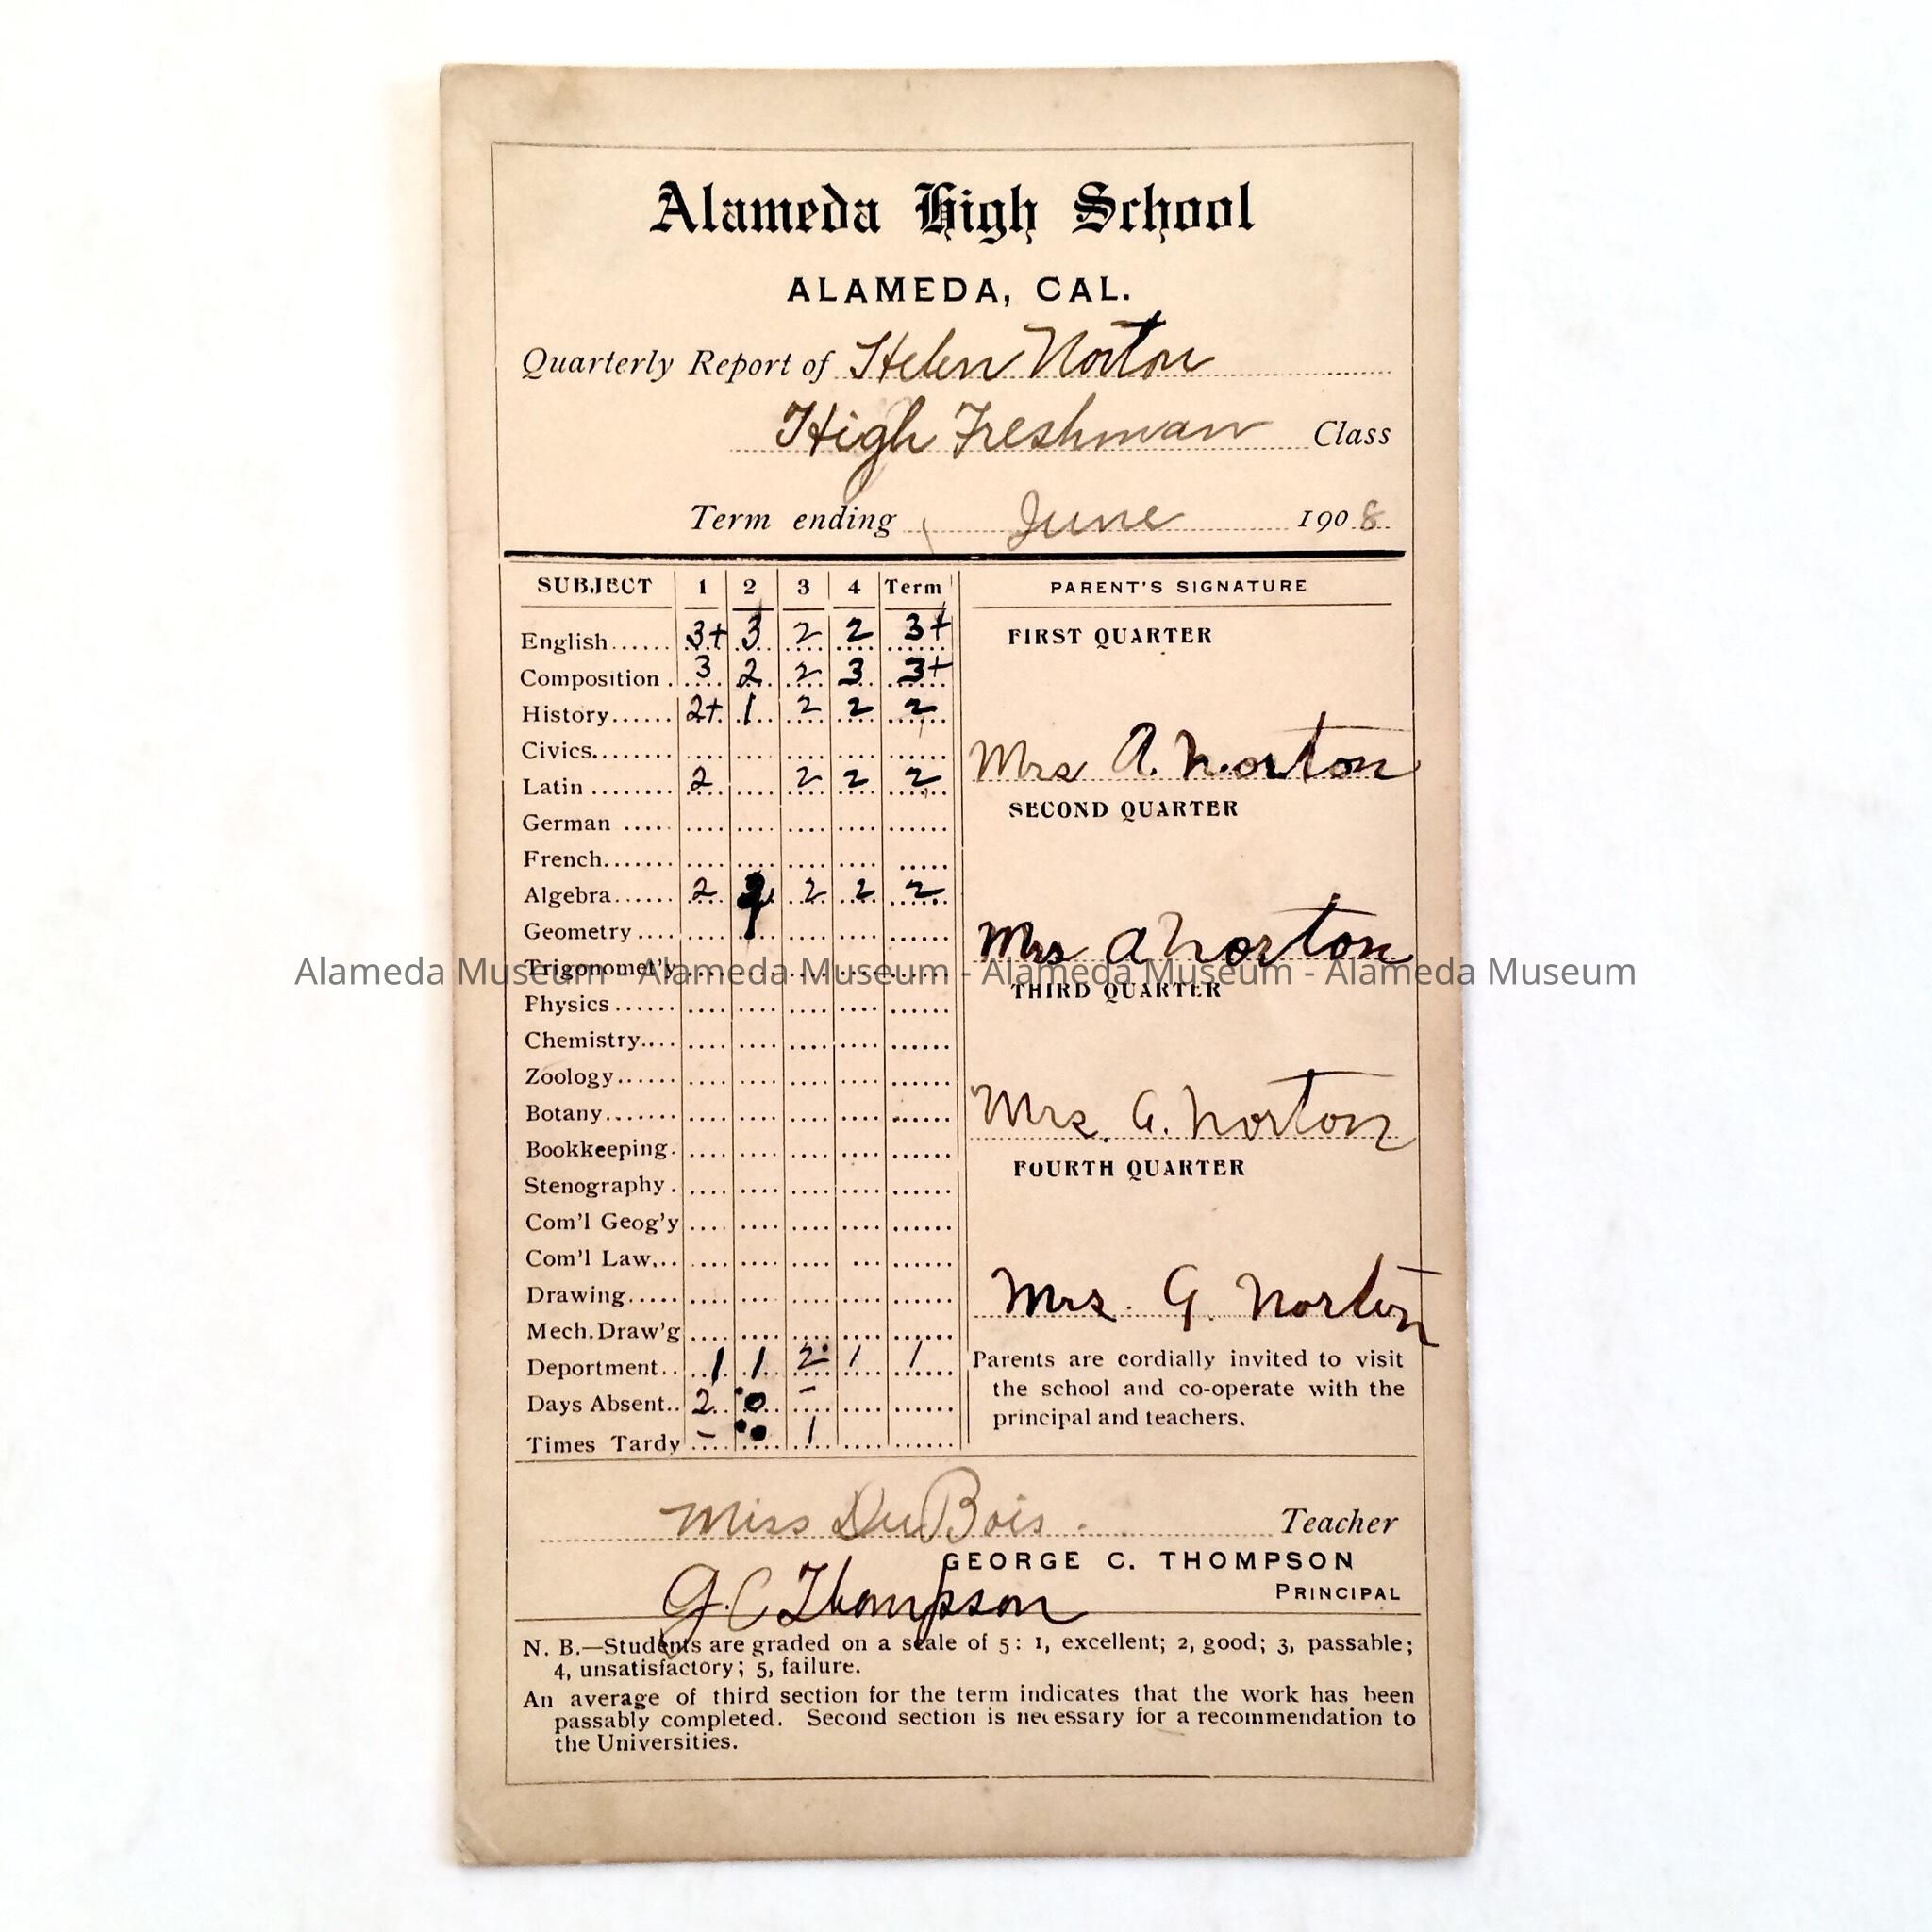 Alameda High School
ALAMEDA, CAL.
Quarterly Report of Helen Norton
High Freshman Class
Term ending June 1908
SUBJECT 1 2 3 4 Term
English...... 3+ 3 2 2 3+
Composition . 3 2 2 3 3+
History...... 2+ 1 2 2 2
Civics........
Latin ........ 2 2 2 2
German ....
French.......
Algebra...... 2 2 2 2
Geometry ....
Trigonomet'y
Physics ......
Chemistry....
Zoology......
Botany.......
Bookkeeping.
Stenography .
Com'l Geog'y
Com'l Law...
Drawing.....
Mech. Draw'g
Deportment.. 1 1 2 1 1
Days Absent.. 2 0 -
Times Tardy - 1
PARENT'S SIGNATURE
FIRST QUARTER
Mrs A. Norton
SECOND QUARTER
Mrs A Norton
THIRD QUARTER
Mrs. G. Norton
FOURTH QUARTER
Mrs. G. Norton
Parents are cordially invited to visit
the school and co-operate with the
principal and teachers.
Alameda Museum - Alameda Museum - Alameda Museum - Alameda Museum
Miss DuBois Teacher
GEORGE C. THOMPSON
G. C Thompson PRINCIPAL
N. B.—Students are graded on a scale of 5: 1, excellent; 2, good; 3, passable;
4, unsatisfactory; 5, failure.
An average of third section for the term indicates that the work has been
passably completed. Second section is necessary for a recommendation to
the Universities.